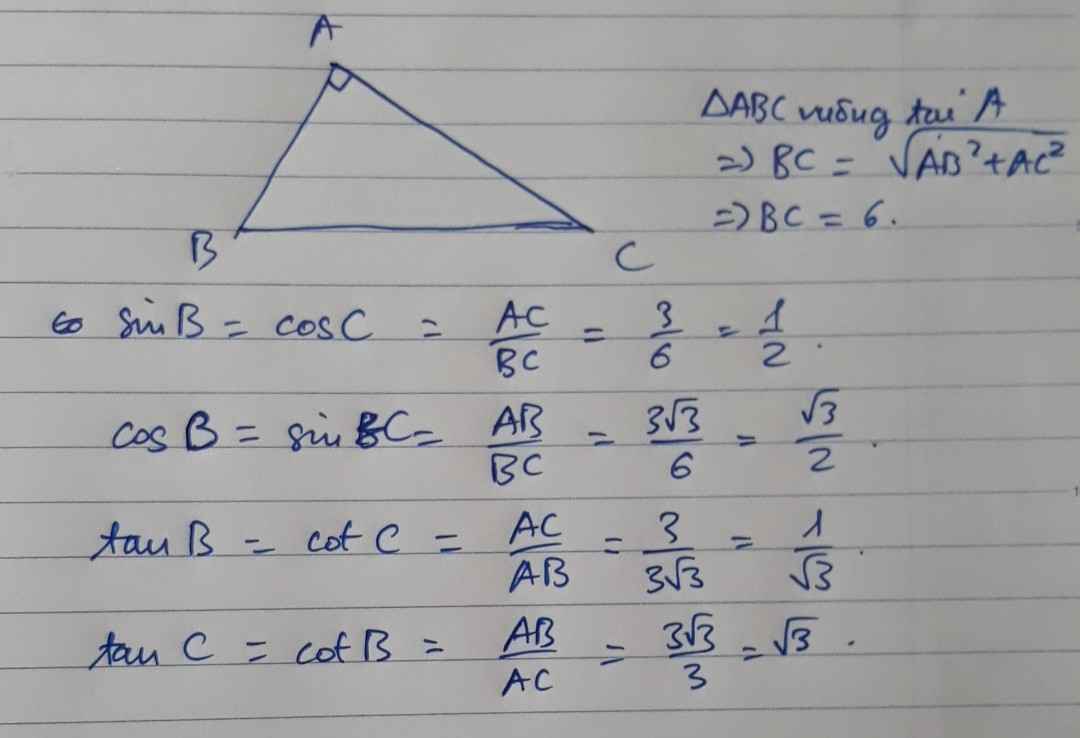 A
B
C
ΔABC vuông tại A
=> BC = √(AB²+AC²)
=> BC = 6.
sin B = cos C = AC/BC = 3/6 = 1/2.
cos B = sin C = AB/BC = 3√3/6 = √3/2.
tan B = cot C = AC/AB = 3/3√3 = 1/√3.
tan C = cot B = AB/AC = 3√3/3 = √3.